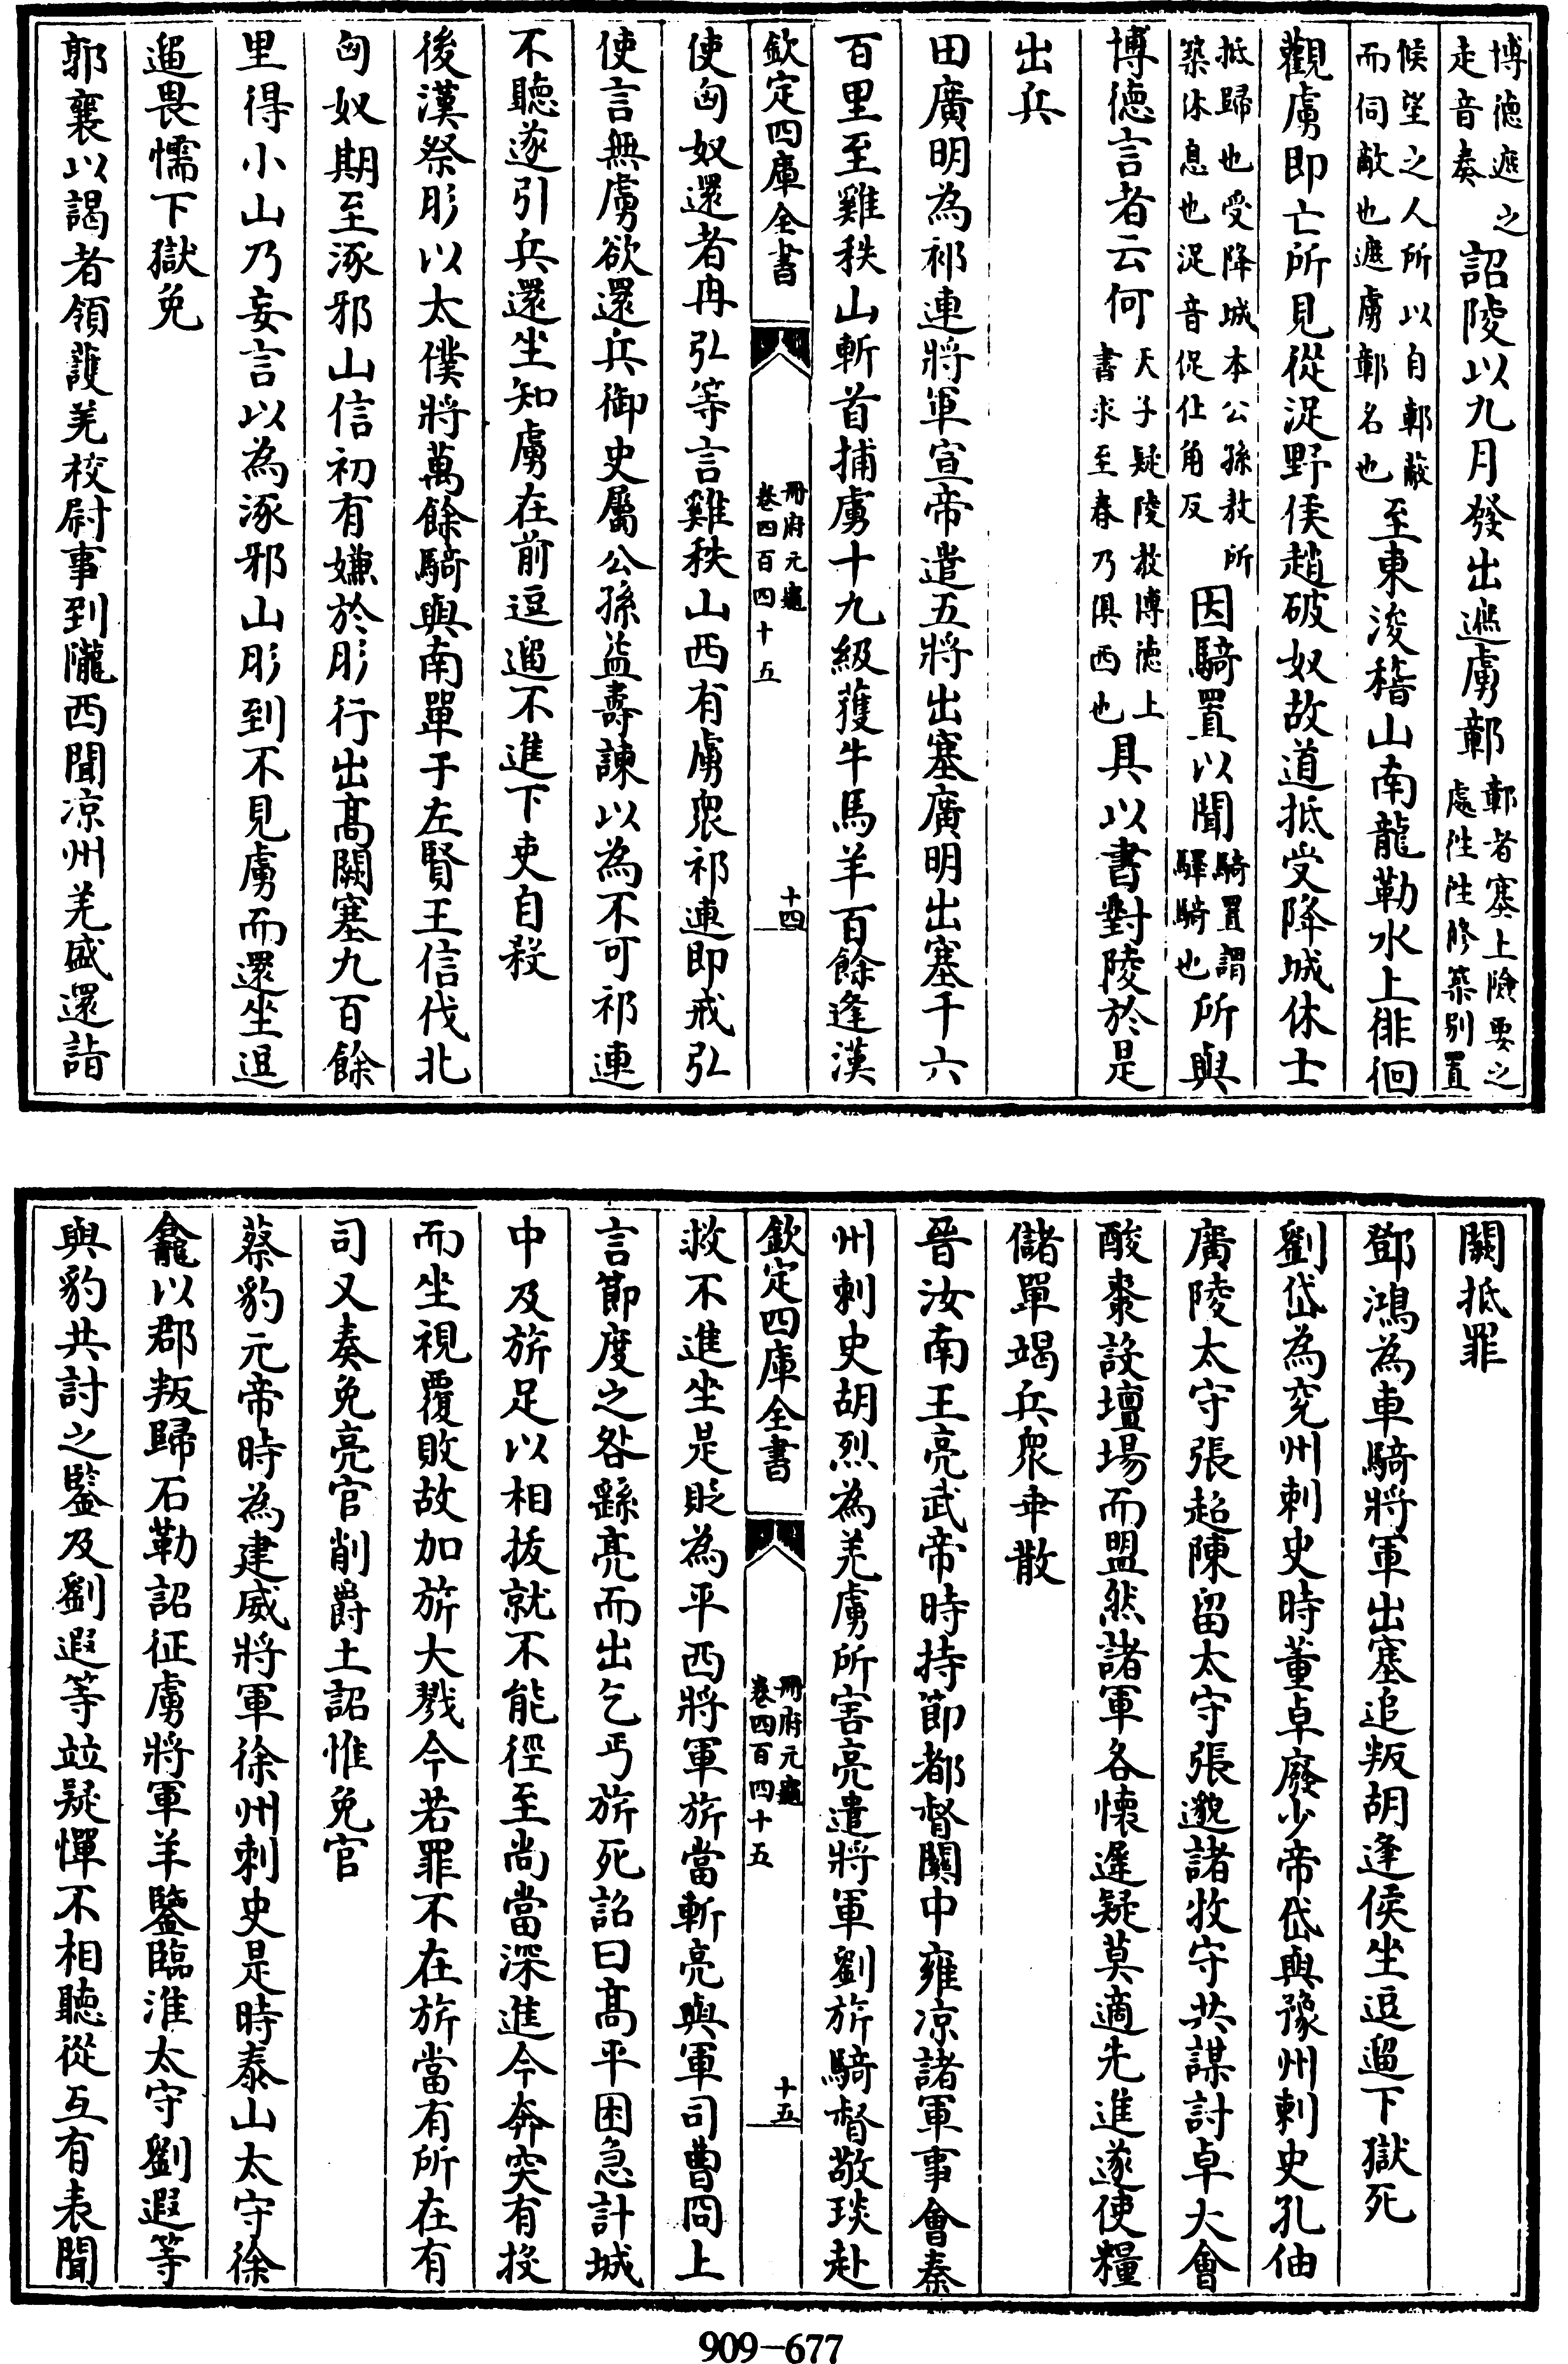 博德遮之走音奏詔陵以九月發出遮虜鄣鄣者塞上險要之處往往修築别置
候望之人所以自鄣蔽而伺敵也遮虜鄣名也至東浚稽山南龍勒水上徘徊
觀虜即亡所見從浞野侯趙破奴故道抵受降城休士
抵歸也受降城本公孫敖所築休息也浞音促仕角反因騎置以聞騎置謂驛騎也所與
博德言者云何天子疑陵教博德上書求至春乃俱西也具以書對陵於是
出兵
田廣明為祁連將軍宣帝遣五將出塞廣明出塞千六
百里至雞秩山斬首捕虜十九級獲牛馬羊百餘逢漢
欽定四庫全書 冊府元龜卷四百四十五 十四
使匈奴還者冉弘等言雞秩山西有虜衆祁連即戒弘
使言無虜欲還兵御史屬公孫益壽諫以為不可祁連
不聽遂引兵還坐知虜在前逗遛不進下吏自殺
後漢祭肜以太僕將萬餘騎與南單于左賢王信伐北
匈奴期至涿邪山信初有嫌於肜行出高闕塞九百餘
里得小山乃妄言以為涿邪山肜到不見虜而還坐逗
遛畏懦下獄免
郭襄以謁者領護羌校尉事到隴西聞凉州羌盛還詣
闕抵罪
鄧鴻為車騎將軍出塞追叛胡逢侯坐逗遛下獄死
劉岱為兖州刺史時董卓廢少帝岱與豫州刺史孔伷
廣陵太守張超陳留太守張邈諸牧守共謀討卓大會
酸棗設壇場而盟然諸軍各懷遲疑莫適先進遂使糧
儲單竭兵衆乖散
晉汝南王亮武帝時持節都督關中雍凉諸軍事會秦
州刺史胡烈為羌虜所害亮遣將軍劉旂騎督敬琰赴
欽定四庫全書 冊府元龜卷四百四十五 十五
救不進坐是貶為平西將軍旂當斬亮與軍司曹冏上
言節度之咎繇亮而出乞丐旂死詔曰高平困急計城
中及旂足以相拔就不能徑至尚當深進今奔突有投
而坐視覆敗故加旂大戮今若罪不在旂當有所在有
司又奏免亮官削爵土詔惟免官
蔡豹元帝時為建威將軍徐州刺史是時泰山太守徐
龕以郡叛歸石勒詔征虜將軍羊鑒臨淮太守劉遐等
與豹共討之鑒及劉遐等竝疑憚不相聽從互有表聞
909—677